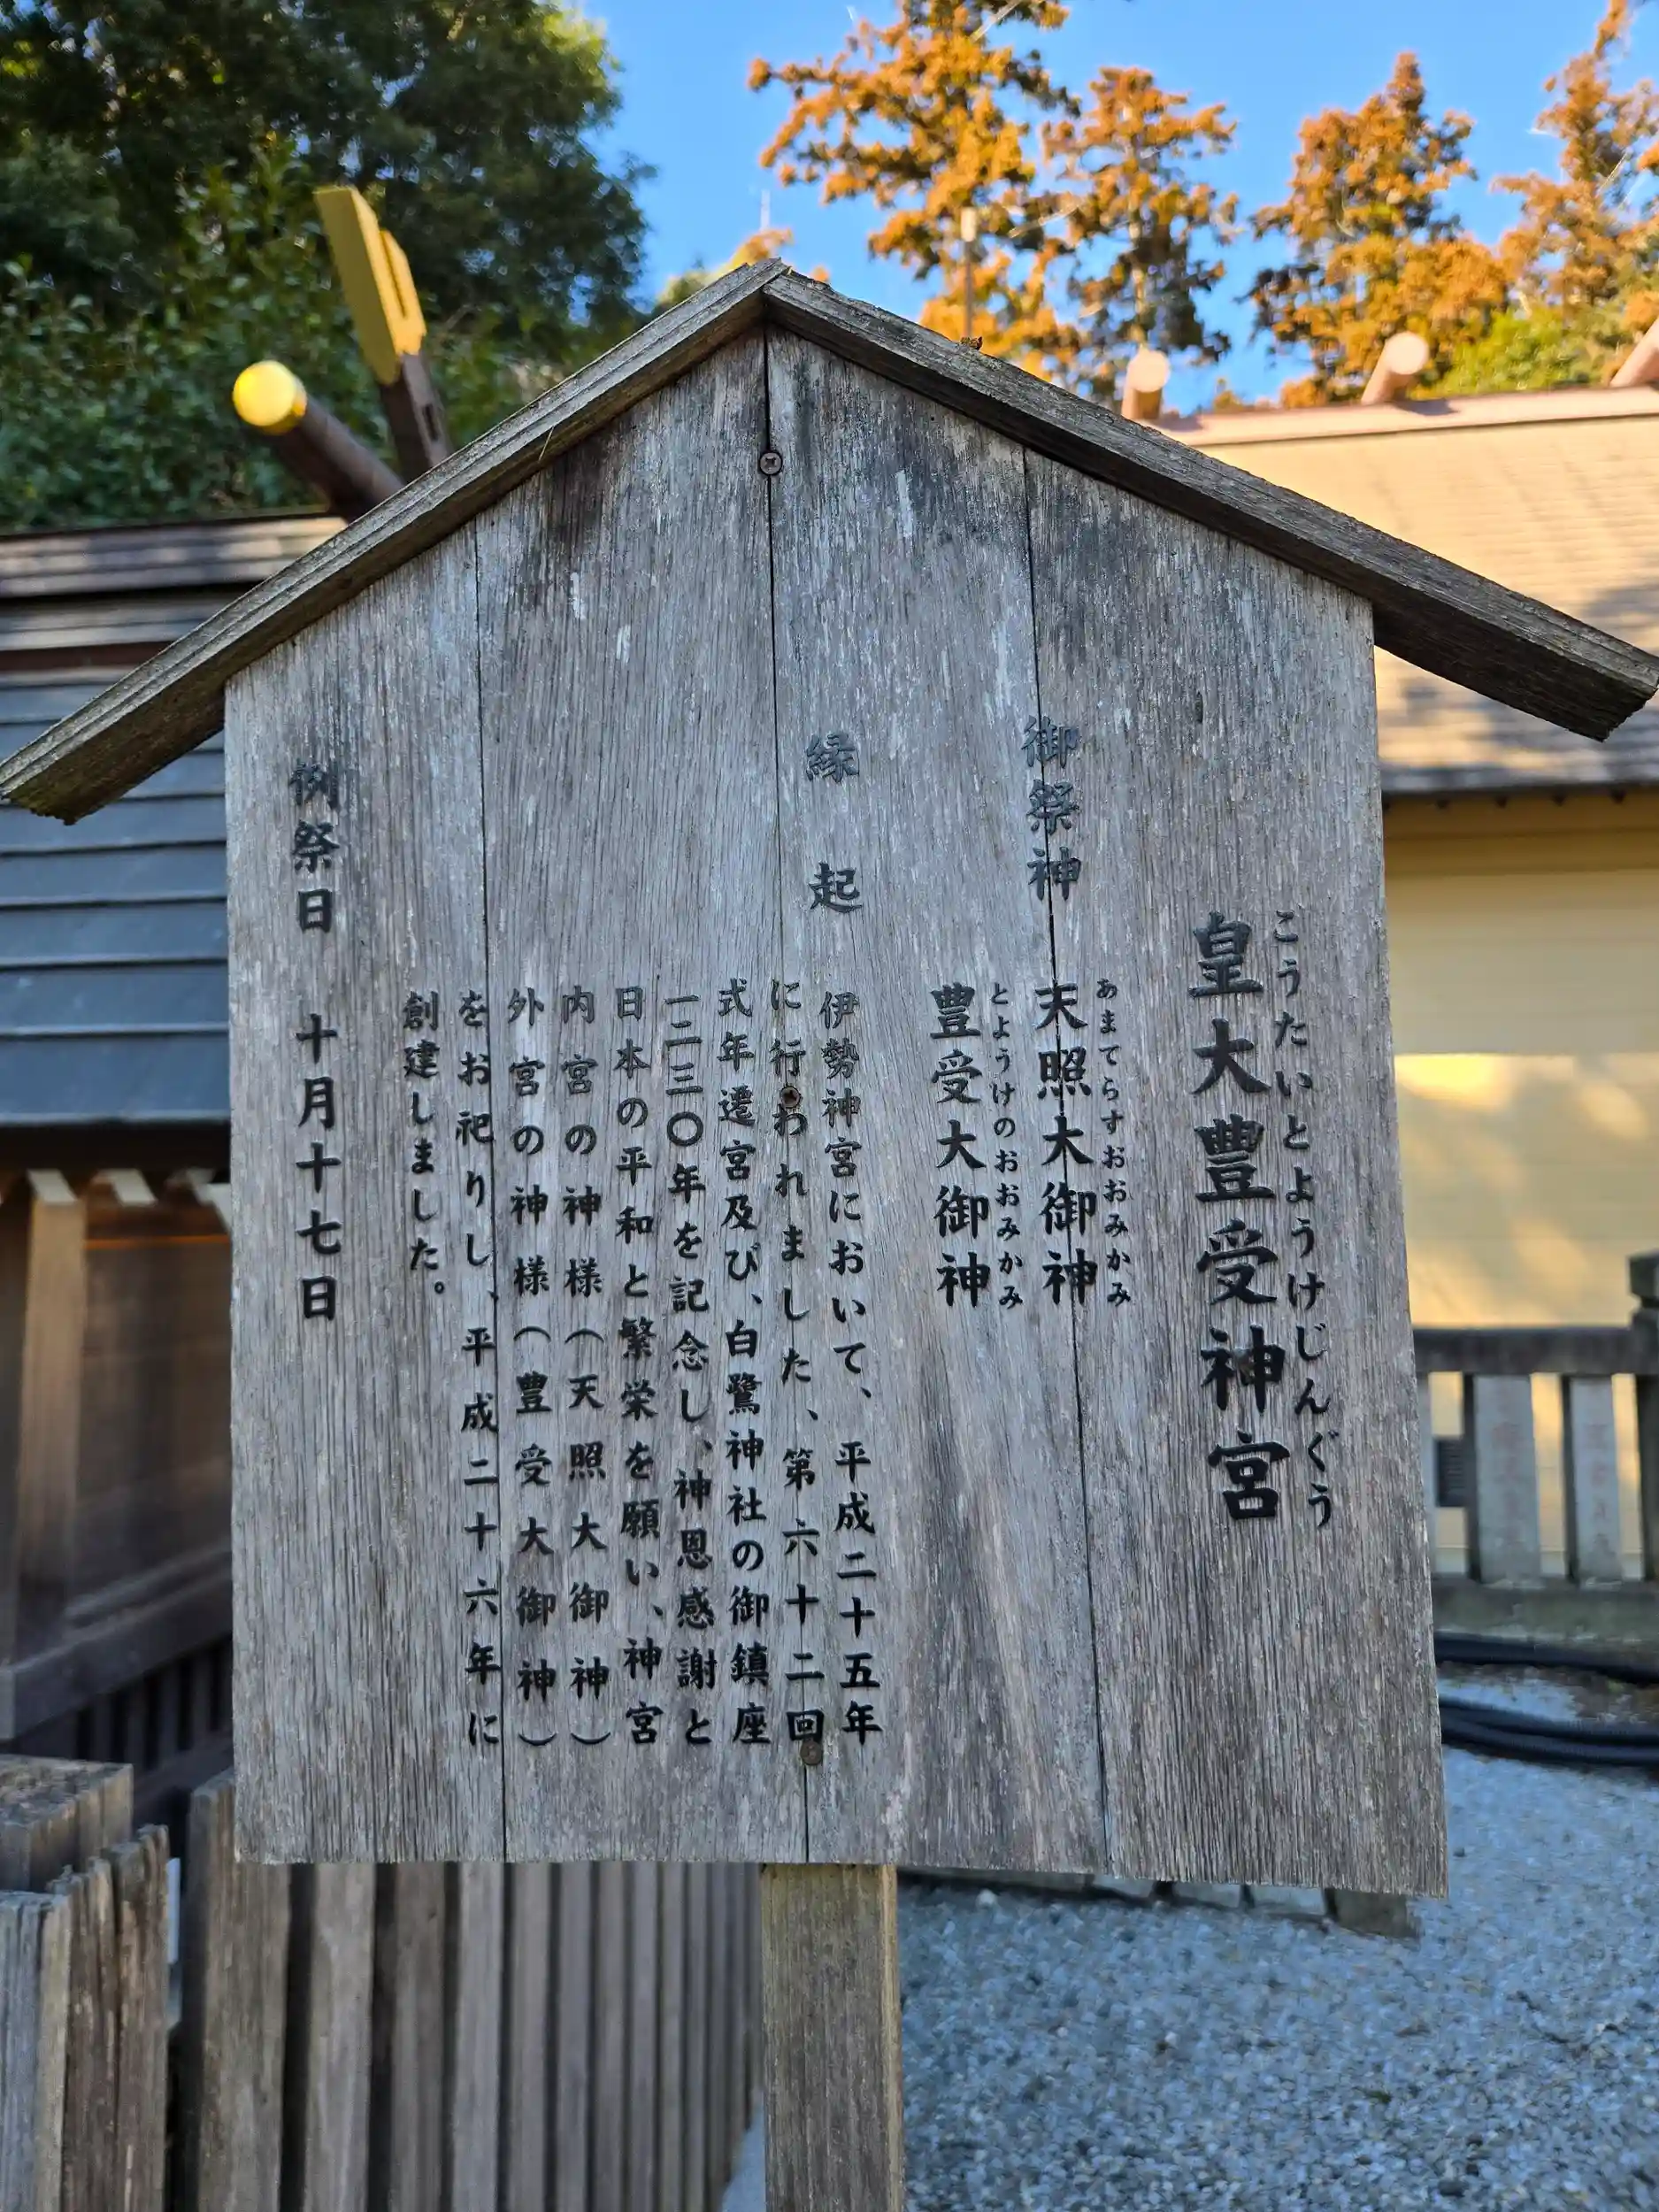 こうたいとようけじんぐう
皇大豊受神宮
御祭神
あまてらすおおみかみ
天照大御神
とようけのおおみかみ
豊受大御神
縁起
伊勢神宮において、平成二十五年
に行われました、第六十二回
式年遷宮及び、白鷺神社の御鎮座
一二三〇年を記念し、神恩感謝と
日本の平和と繁栄を願い、神宮
内宮の神様（天照大御神）
外宮の神様（豊受大御神）
をお祀りし、平成二十六年に
創建しました。
例祭日 十月十七日